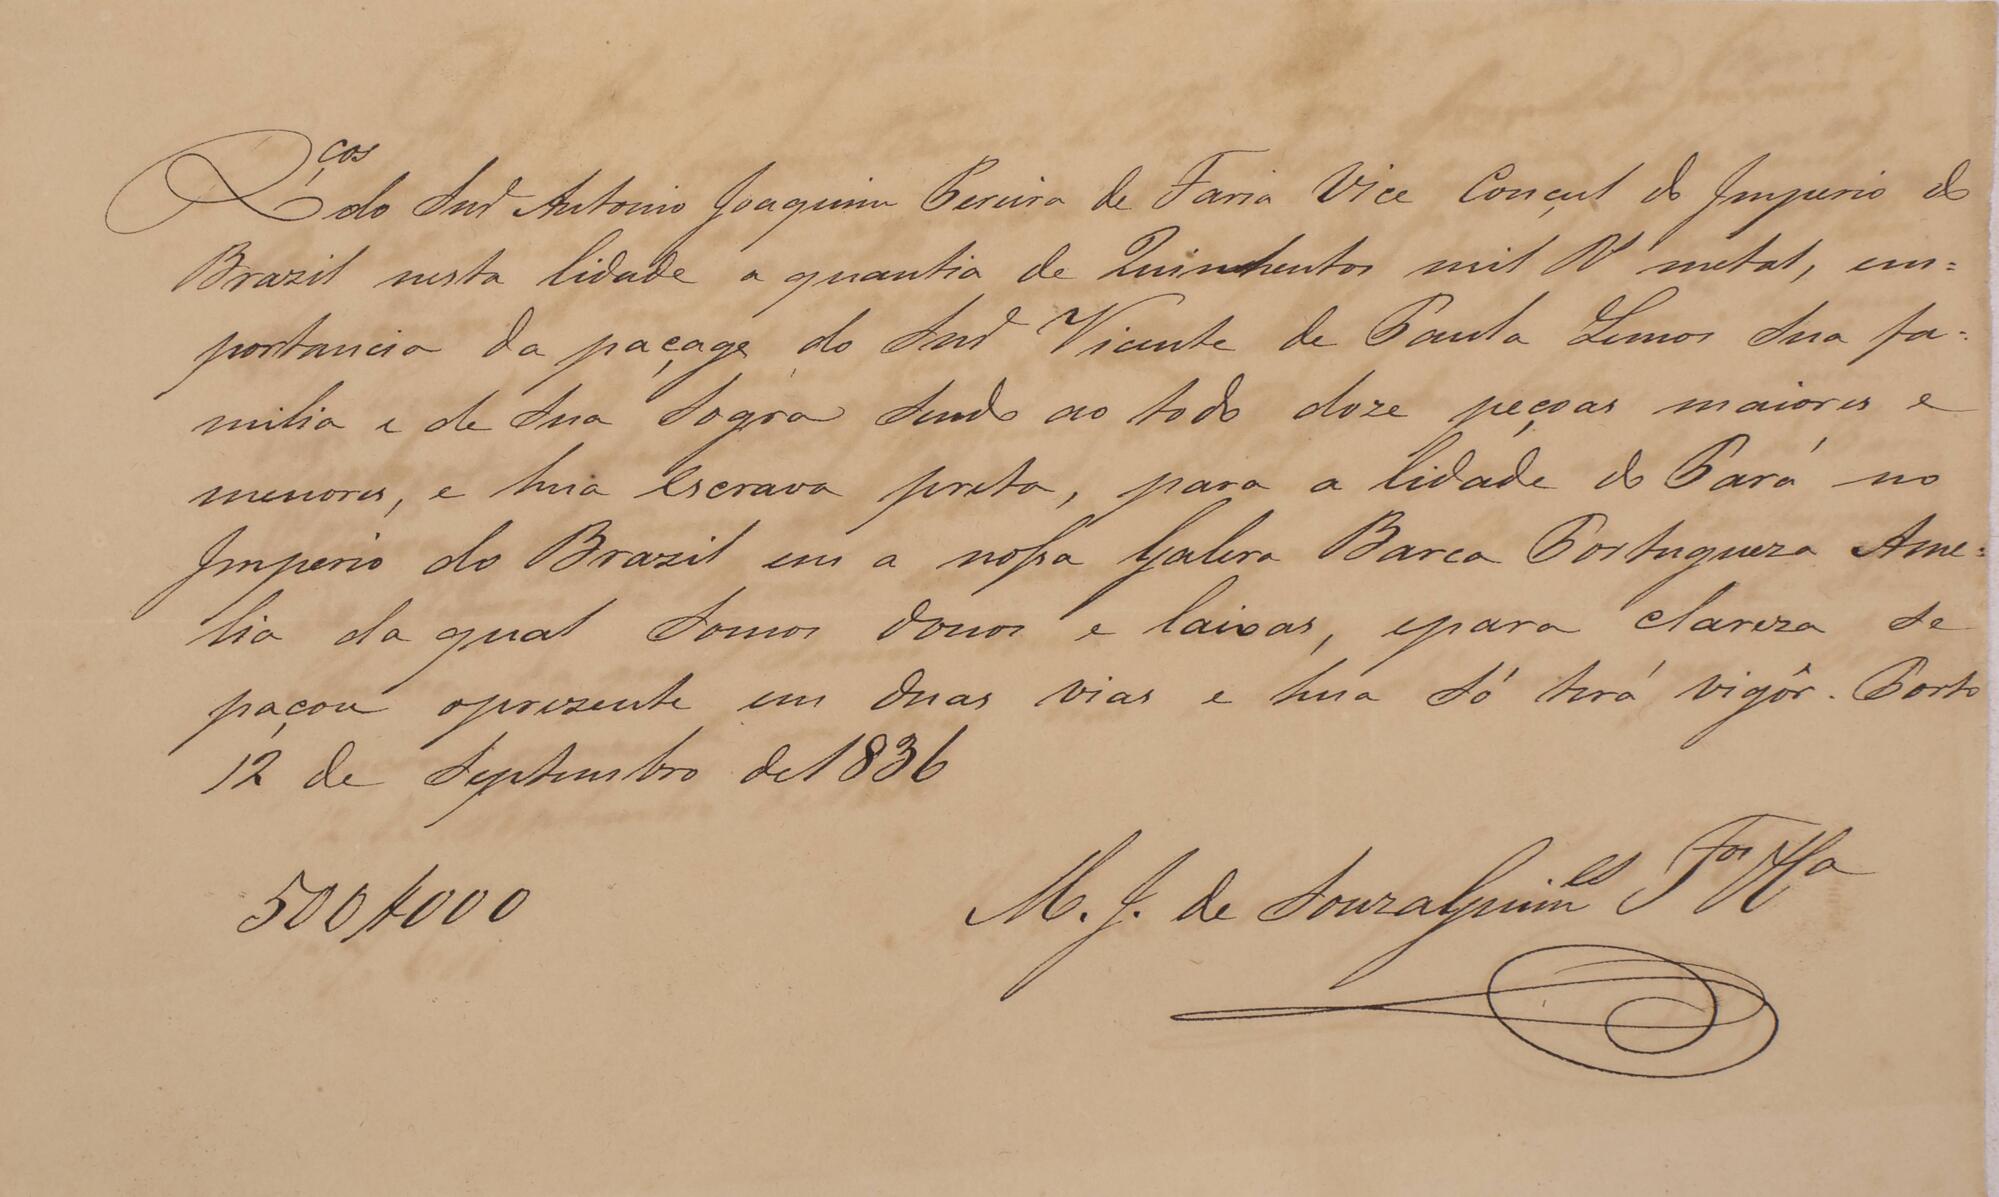 Rços do Snr Antonio Joaquim Pereira de Faria Vice Conçul do Imperio do
Brazil nesta Cidade a quantia de Quinhentos mil Rs metal, em=
portancia da paçage do Snr Vicente de Paula Lemos Sua fa=
milia e de Sua Sogra Sendo ao todo doze peçoas maiores e
menores, e hua escrava preta, para a Cidade do Pará no
Imperio do Brazil em a nossa Galera Barca Portugueza Ame=
lia da qual Somos donos e Caixas, epara clareza se
paçou oprezente em duas vias e hua Só terá vigôr. Porto
12 de Septembro de 1836
500$000
M. J. de Souza Guimes Fos & Ca